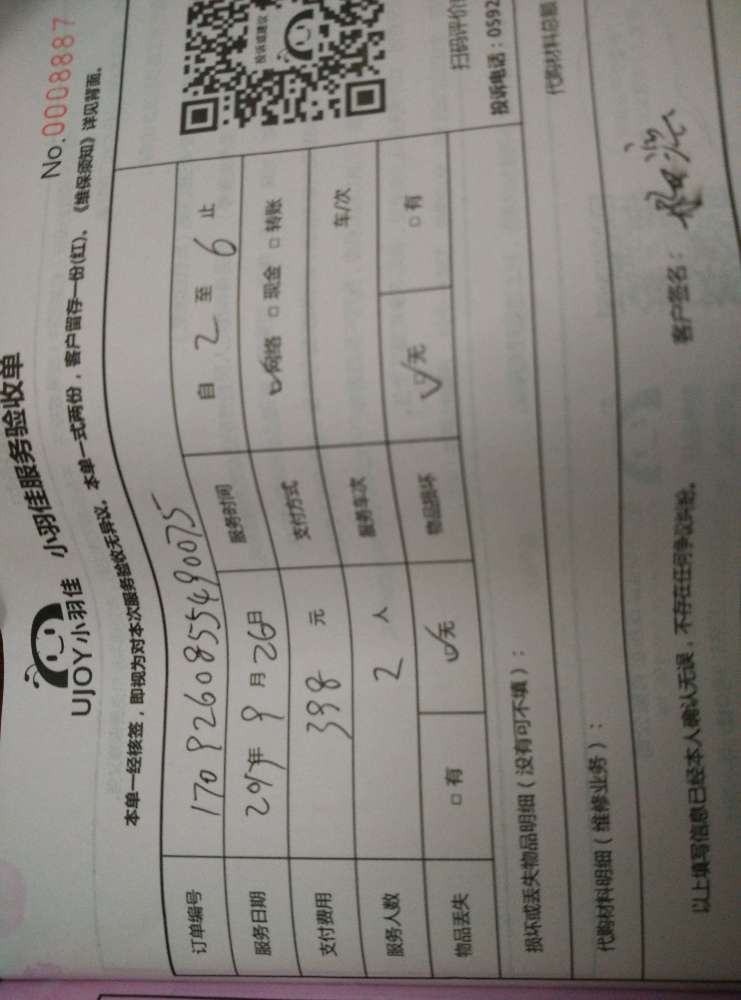 UJOY小羽佳 小羽佳服务验收单
No.0008887
本单一经核签，即视为对本次服务验收无异议。本单一式两份，客户留存一份(红)、《维保须知》详见背面。
订单编号 1709260855490075
服务日期 2017年9月26日 服务时间 自 2 至 6 止
支付费用 398 元 支付方式 ☑网络 □现金 □转账
服务人数 2 人 服务车次 车/次
物品丢失 □有 ☑无 物品损坏 ☑无 □有
投诉或建议
扫码评价
投诉电话：0592
损坏或丢失物品明细（没有可不填）：
代购材料明细（维修业务）： 代购材料总额
以上填写信息已经本人确认无误，不存在任何争议纠纷。 客户签名：